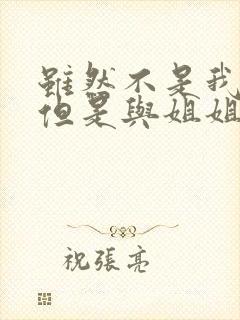 雖然不是我
但是與姐姐
祝張亮